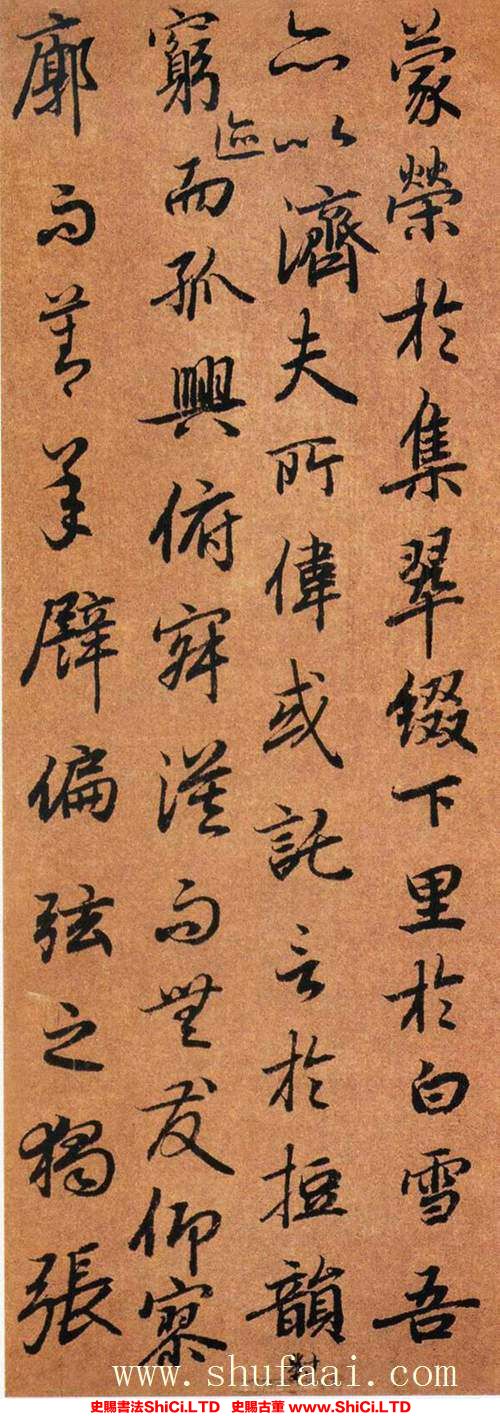 蒙榮於集翠綴下里於白雪吾
亦以濟夫所偉或託言於短韻對
窮迹而孤興俯寂漠而無友仰寥
廓而莫承譬偏弦之獨張
www.shufaai.com
史賜書法ShiCi.LTD 史賜古董www.ShiCi.LTD